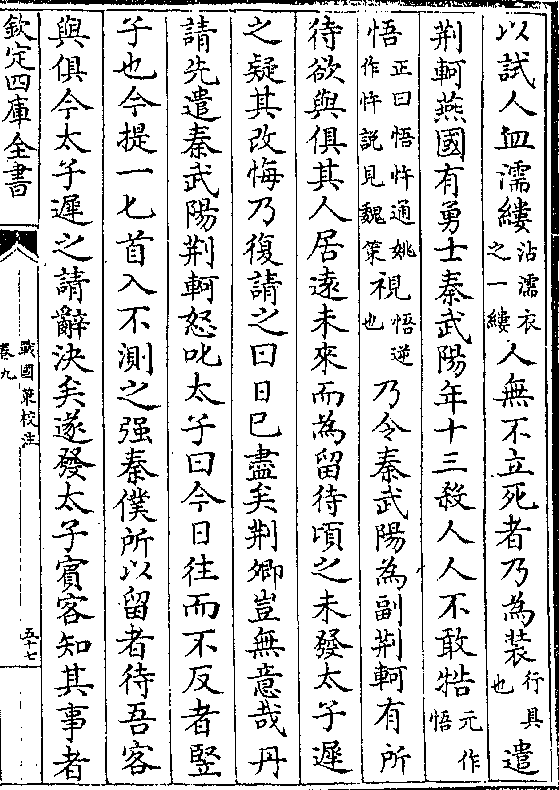 以試人血濡縷沾濡衣之一縷人無不立死者乃為装行具也遣
荆軻燕國有勇士秦武陽年十三殺人人不敢牾元作悟
悟正曰悟忤通姚作忤説見魏策視悟逆也乃令秦武陽為副荆軻有所
待欲與俱其人居遠未來而為留待頃之未發太子遲
之疑其改悔乃復請之曰日已盡矣荆卿豈無意哉丹
請先遣秦武陽荆軻怒叱太子曰今日往而不反者竪
子也今提一匕首入不測之强秦僕所以留者待吾客
與俱今太子遲之請辭決矣遂發太子賓客知其事者
欽定四庫全書
戰國策校注
卷九
五十七